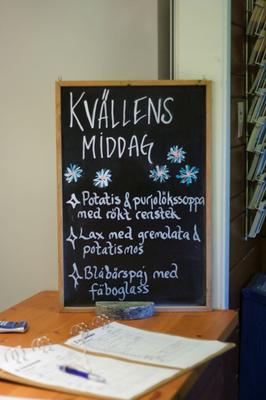 KVÄLLENS
MIDDAG
Potatis & purjolökssoppa
med rökt renstek
Lax med gremolata &
potatismos
Blåbärspaj med
fäboglass